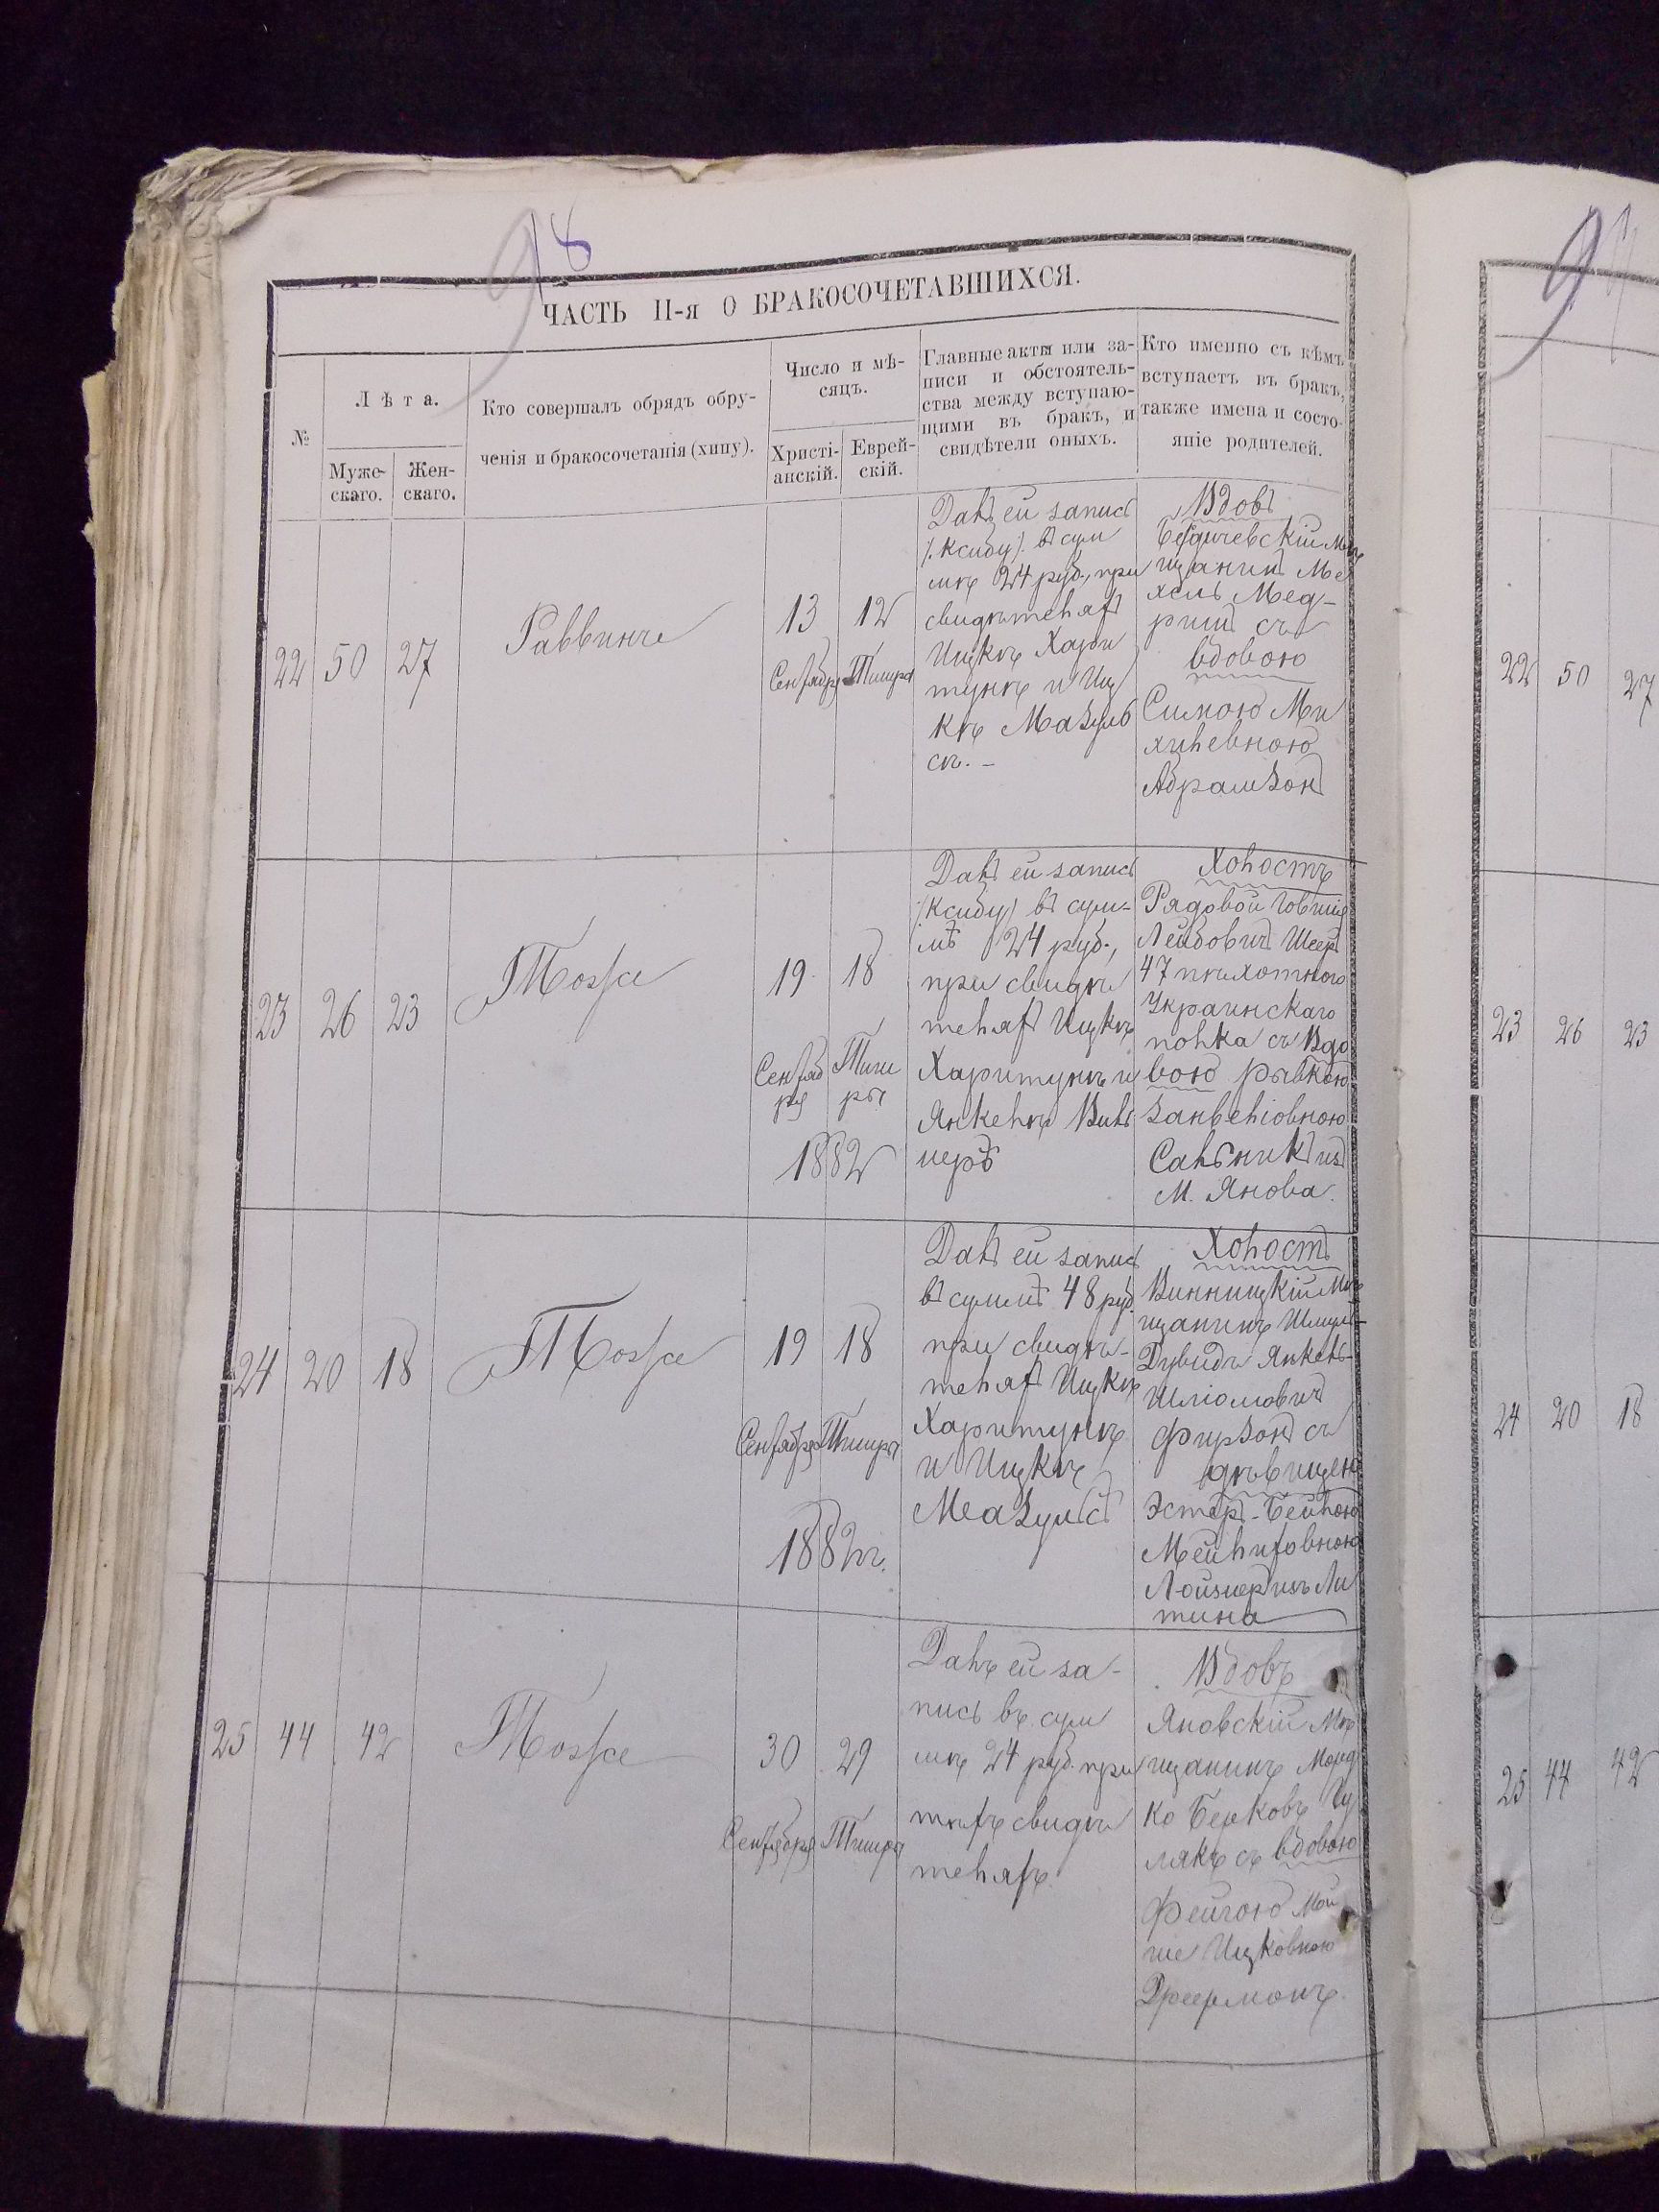 98
ЧАСТЬ II-я О БРАКОСОЧЕТАВШИХСЯ.
№
Лѣта.
Муже-
скаго.
Жен-
скаго.
Кто совершалъ обрядъ обру-
ченія и бракосочетанія (хипу).
Число и мѣ-
сяцъ.
Христі-
анскій.
Еврей-
скій.
Главные акты или за-
писи и обстоятель-
ства между вступаю-
щими въ бракъ, и
свидѣтели оныхъ.
Кто именно съ кѣмъ
вступаетъ въ бракъ,
также имена и состо-
яніе родителей.
22
50
27
Раввинъ
13
Сентября
12
Тишры
Далъ ей запись
/:Ксибу:/ въ сум
мѣ 24 руб., при
свидѣтеляхъ
Ицкѣ Хари
тункѣ и Иц
кѣ Мазуль
сѣ. –
Вдовъ
Бердичевскій Мѣ
щанинъ Ме
хель Мед-
съ
вдовою
Симою Ми
хилевною
Абрамзонъ
23
26
23
Тоже
19
Сентяб
ря
18
Тиш
ры
1882
Далъ ей запись
/Ксибу/ въ сум-
мѣ 24 руб.,
при свидѣ
теляхъ Ицкѣ
Харитункѣ и
Янкелѣ
Холостъ
Рядовой Говшія
Лейбовичъ Шеръ
47 пѣхотного
Украинскаго
полка съ Вдо
вою Рывкою
Занвеліовною
Сальникъ изъ
М. Янова.
24
20
18
Тоже
19
Сентября
18
Тишры
1882 г.
Далъ ей запись
въ суммѣ 48 руб.
при свидѣ-
теляхъ Ицкѣ
Харитункѣ
и Ицкѣ
Холостъ
Винницкій Мѣ
щанинъ Шмуль-
Дувидъ Янкель-
Шліомовичъ
Фирзонъ съ
дѣвицею
Эстеръ-Бейлою
Мейлиховною
изъ Ли
тина
25
44
42
Тоже
30
Сентября
29
Тишры
Далъ ей за-
пись въ сум
мѣ 24 руб. при
тѣхъ свидѣ
теляхъ.
Вдовъ
Яновскій Мѣ
щанинъ Морд
ко Берковъ Гу
лякъ съ вдовою
Фейгою Мой
ше Ицковною
99
22
50
27
23
26
23
24
20
18
25
44
42